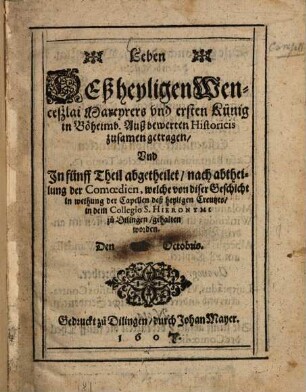 Leben
Deß heyligen Wen-
ceßlai Martyrers vnd ersten Künig
in Böheimb. Auß bewerten Historicis
zusamen getragen /
Vnd
In fünff Theil abgetheilet / nach abthei-
lung der Comœdien, welche von diser Geschicht
in weihung der Capellen deß heyligen Creutzes /
in dem Collegio S. HIERONYMI
zů Dilingen / gehalten
worden.
Den Octobris.
Gedruckt zů Dilingen / durch Johan Mayer.
1607.